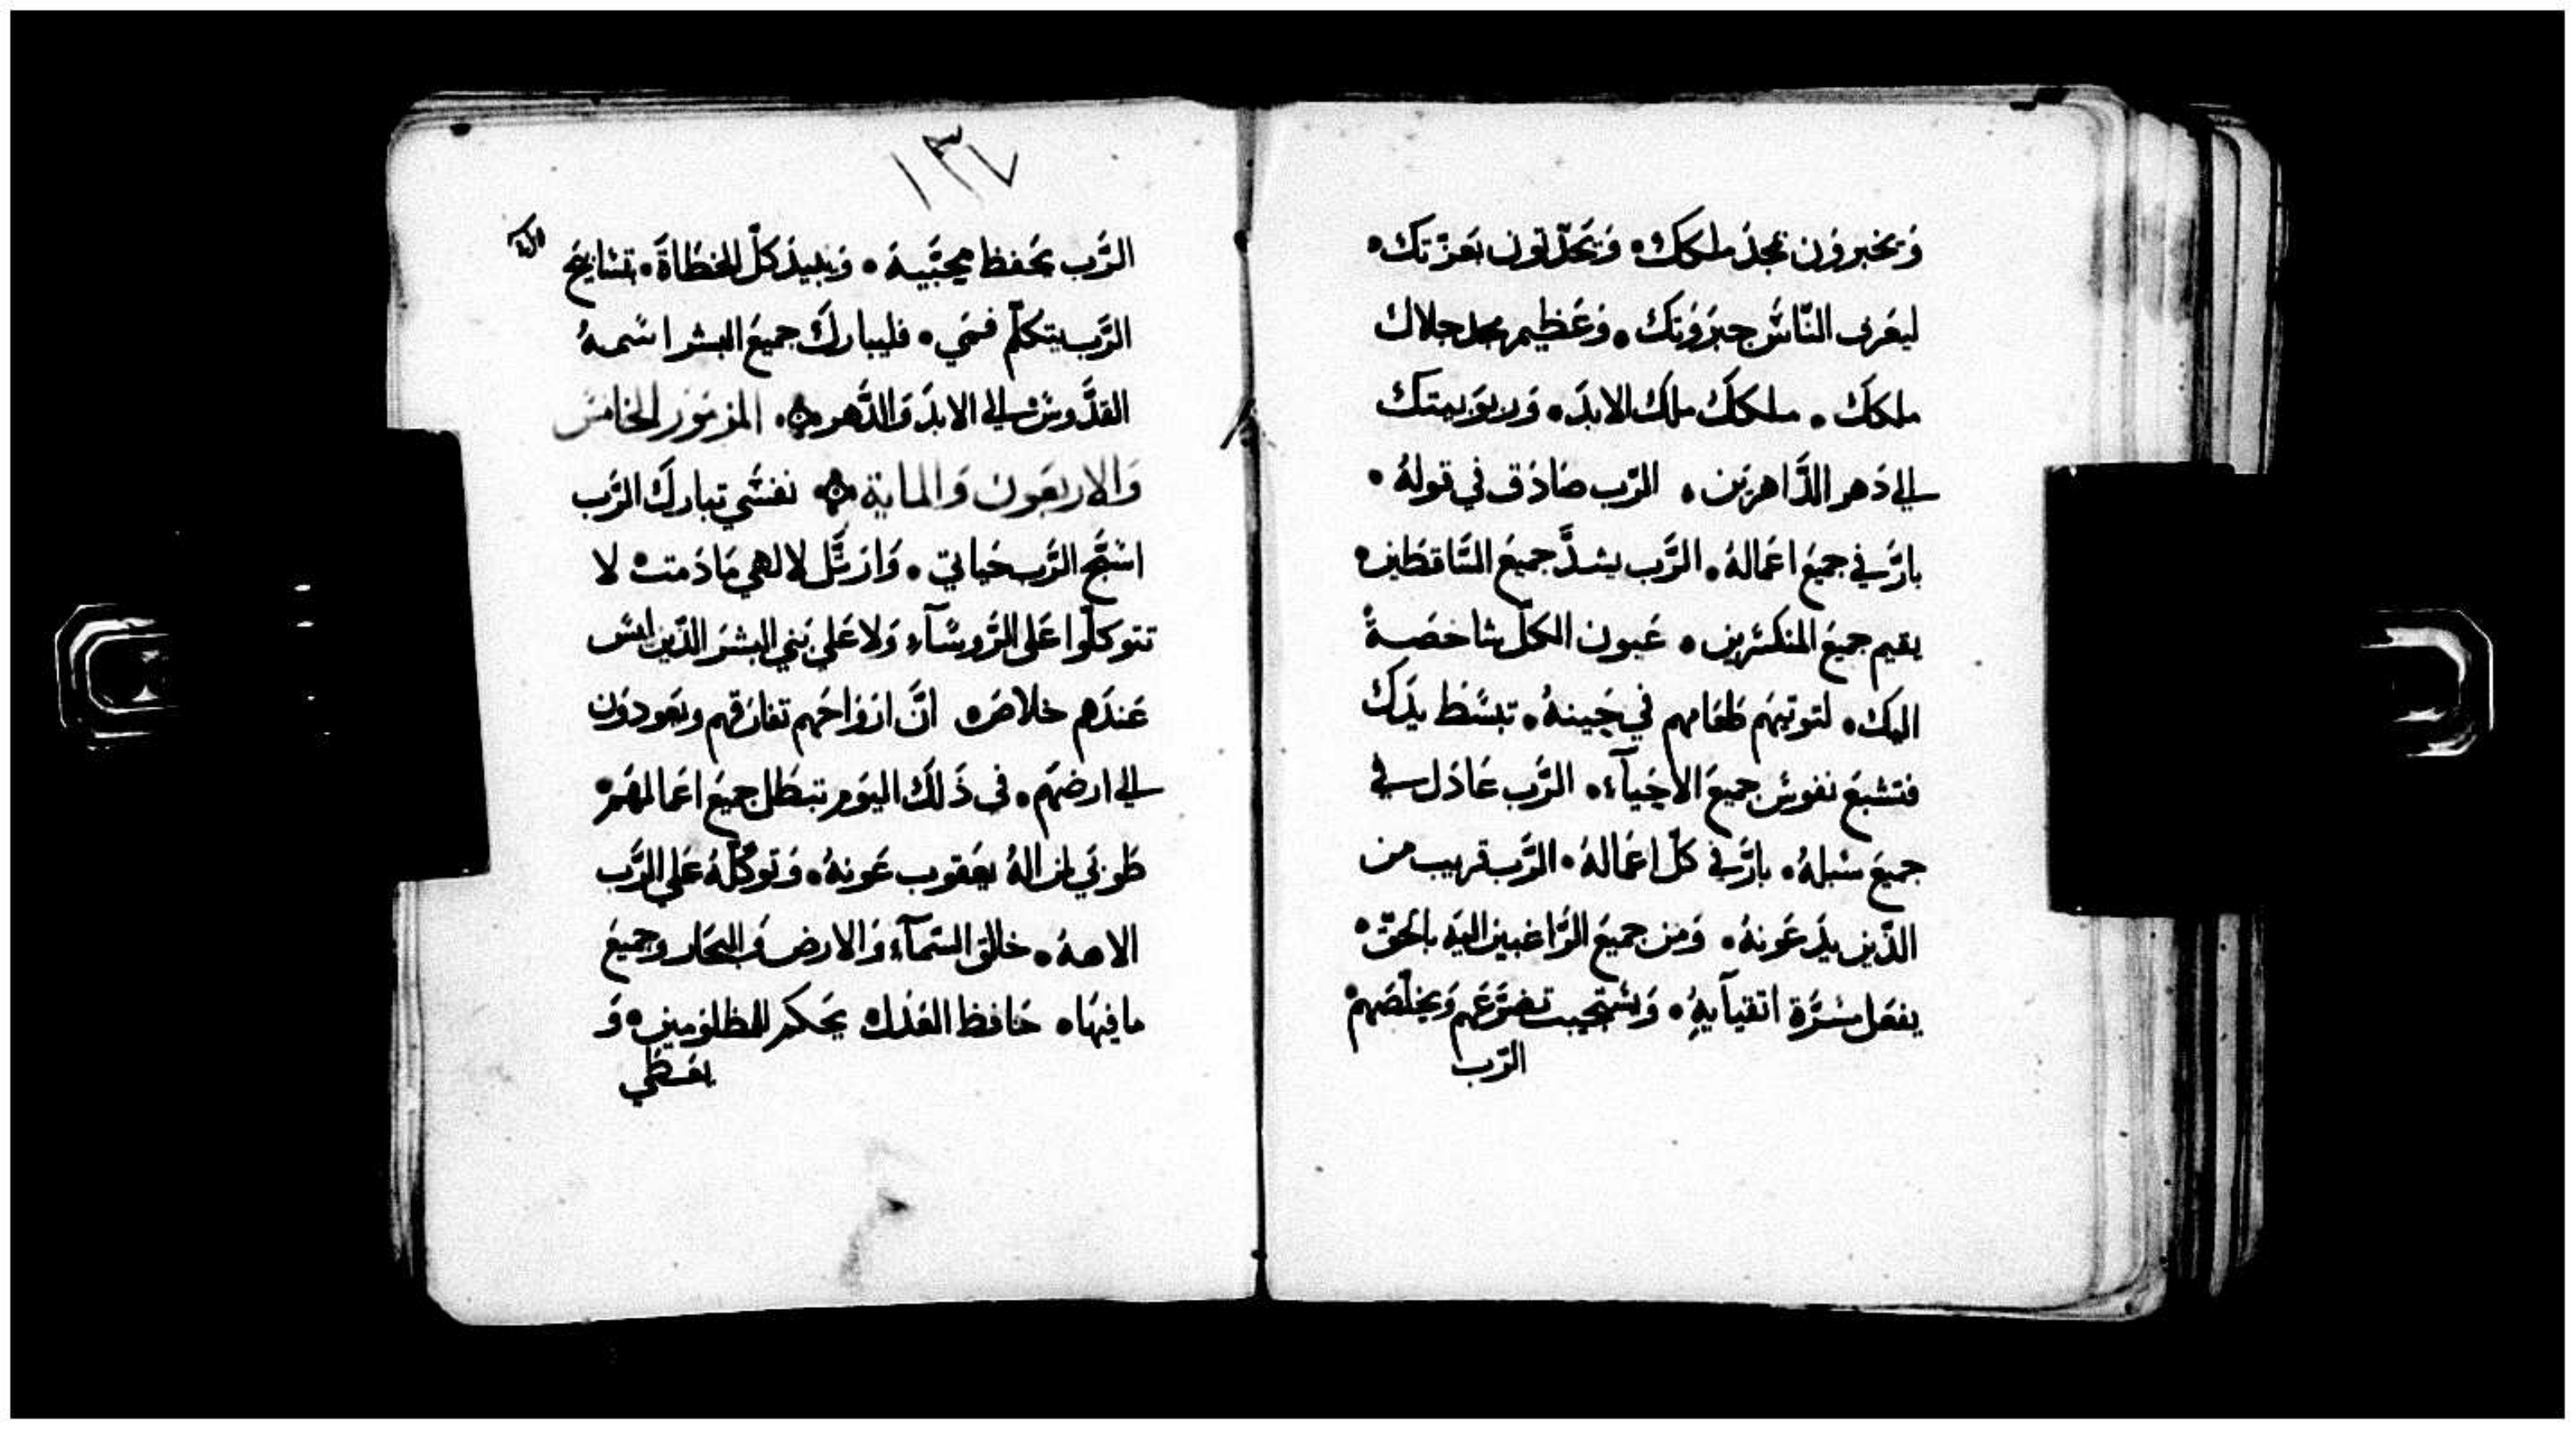 وَيخبروُن بمجدَ ملككك، وَيَتحَدّثون بَعزّتك،
ليعَرف النّاسُ جبرَوُتك، وَعَظيم مجد جلال
ملككَ، ملككَ ملكُ الابدَ، وَربوَبيتك
الي دَهر الدَّاهرَين، الرّب صَادَق في قولهُ،
بارَّ في جميعَ اعَمالهُ، الرَّب يشدَّ جميعَ السَّاقطَين،
يقيم جميعَ المنكسَرين، عَيون الكلّ شاخصَةً
اليك، لتوتيهَم طعَامهم في حَينهُ، تبسَط يدَكَ
فتشبعَ نفوسَ جميعَ الاحَيآء، الرَّب عَادَل في
جميعَ سبلهُ، بارَّ في كلّ اعَمالهُ، الرَّب قريب من
الذّين يدَعَونهُ، وَمن جميعَ الرَّاغبين اليَه بالحَقّ،
يفعَل مسَرَّة اتقيآيهِ، وَيسَتجيب تضرَّعَهم وَيخلّصَهمَ
الرّب
١٣٧
الرَّب يحَفظ محبَّيهَ، وَيبيدَ كلّ الخطَاةَ، تسَابيحَ
الرَّب يتكلّم فمَي، فليباركَ جميعَ البشر اسَمهُ
القدَّوسَ الي الابدَ وَالدَّهر، المزمَوَر الخامسَ
وَالاربعَون وَالماية نفسَي تباركَ الرَّب
اسَبَّح الرَّب حَياتي، وَارَتَّل لالهي مَادَمت، لا
تتوكلّوا عَلى الرَّوسَآء، وَلا عَلي بَني البشرَ الذّين ليسَ
عَندَهم خلاصَ، انَّ ارَوَاحَهم تفارَقهم ويعَودوَن
الي ارضهَم، في ذَلكَ اليوَم تبطَل جميعَ اعَمالهمَ،
طَوبَي لمن الهُ يعَقوب عَونهُ، وَتوَكّلهُ عَلي الرَّب
الاههُ، خالق السَّمآء وَالارض وَالبحَار وجميعَ
مافيهَا، حَافظ العَدَل، يحَكم للمظلوَمين، وَ
يعَطَي